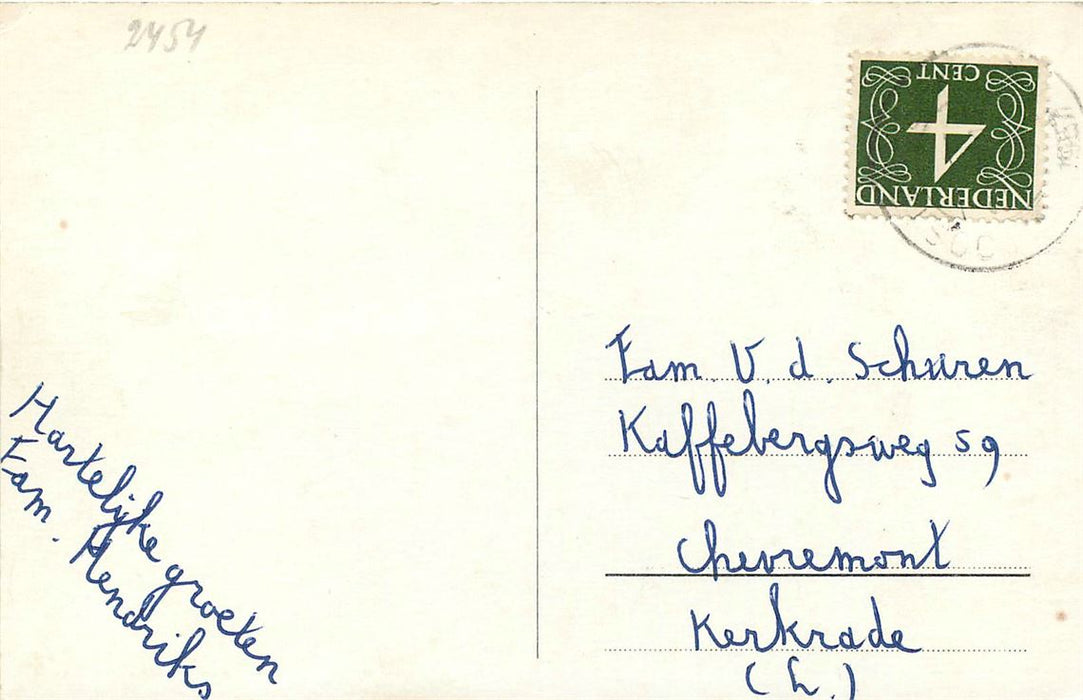 2454
CENT
4
NEDERLAND
Hartelijke groeten
Fam. Hendriks
Fam. V. d. Schuren
Kaffebergsweg 59
Chevremont
Kerkrade
(L.)